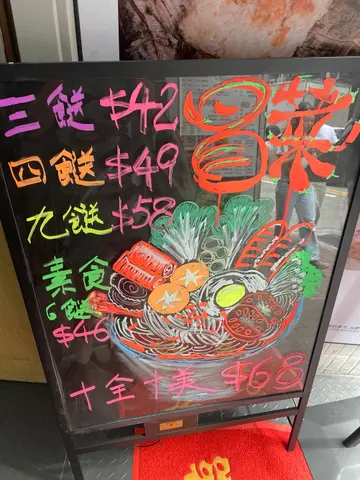 冒菜
三餸 $42
四餸 $49
九餸 $58
素食
6餸
$46
十全十美 $68